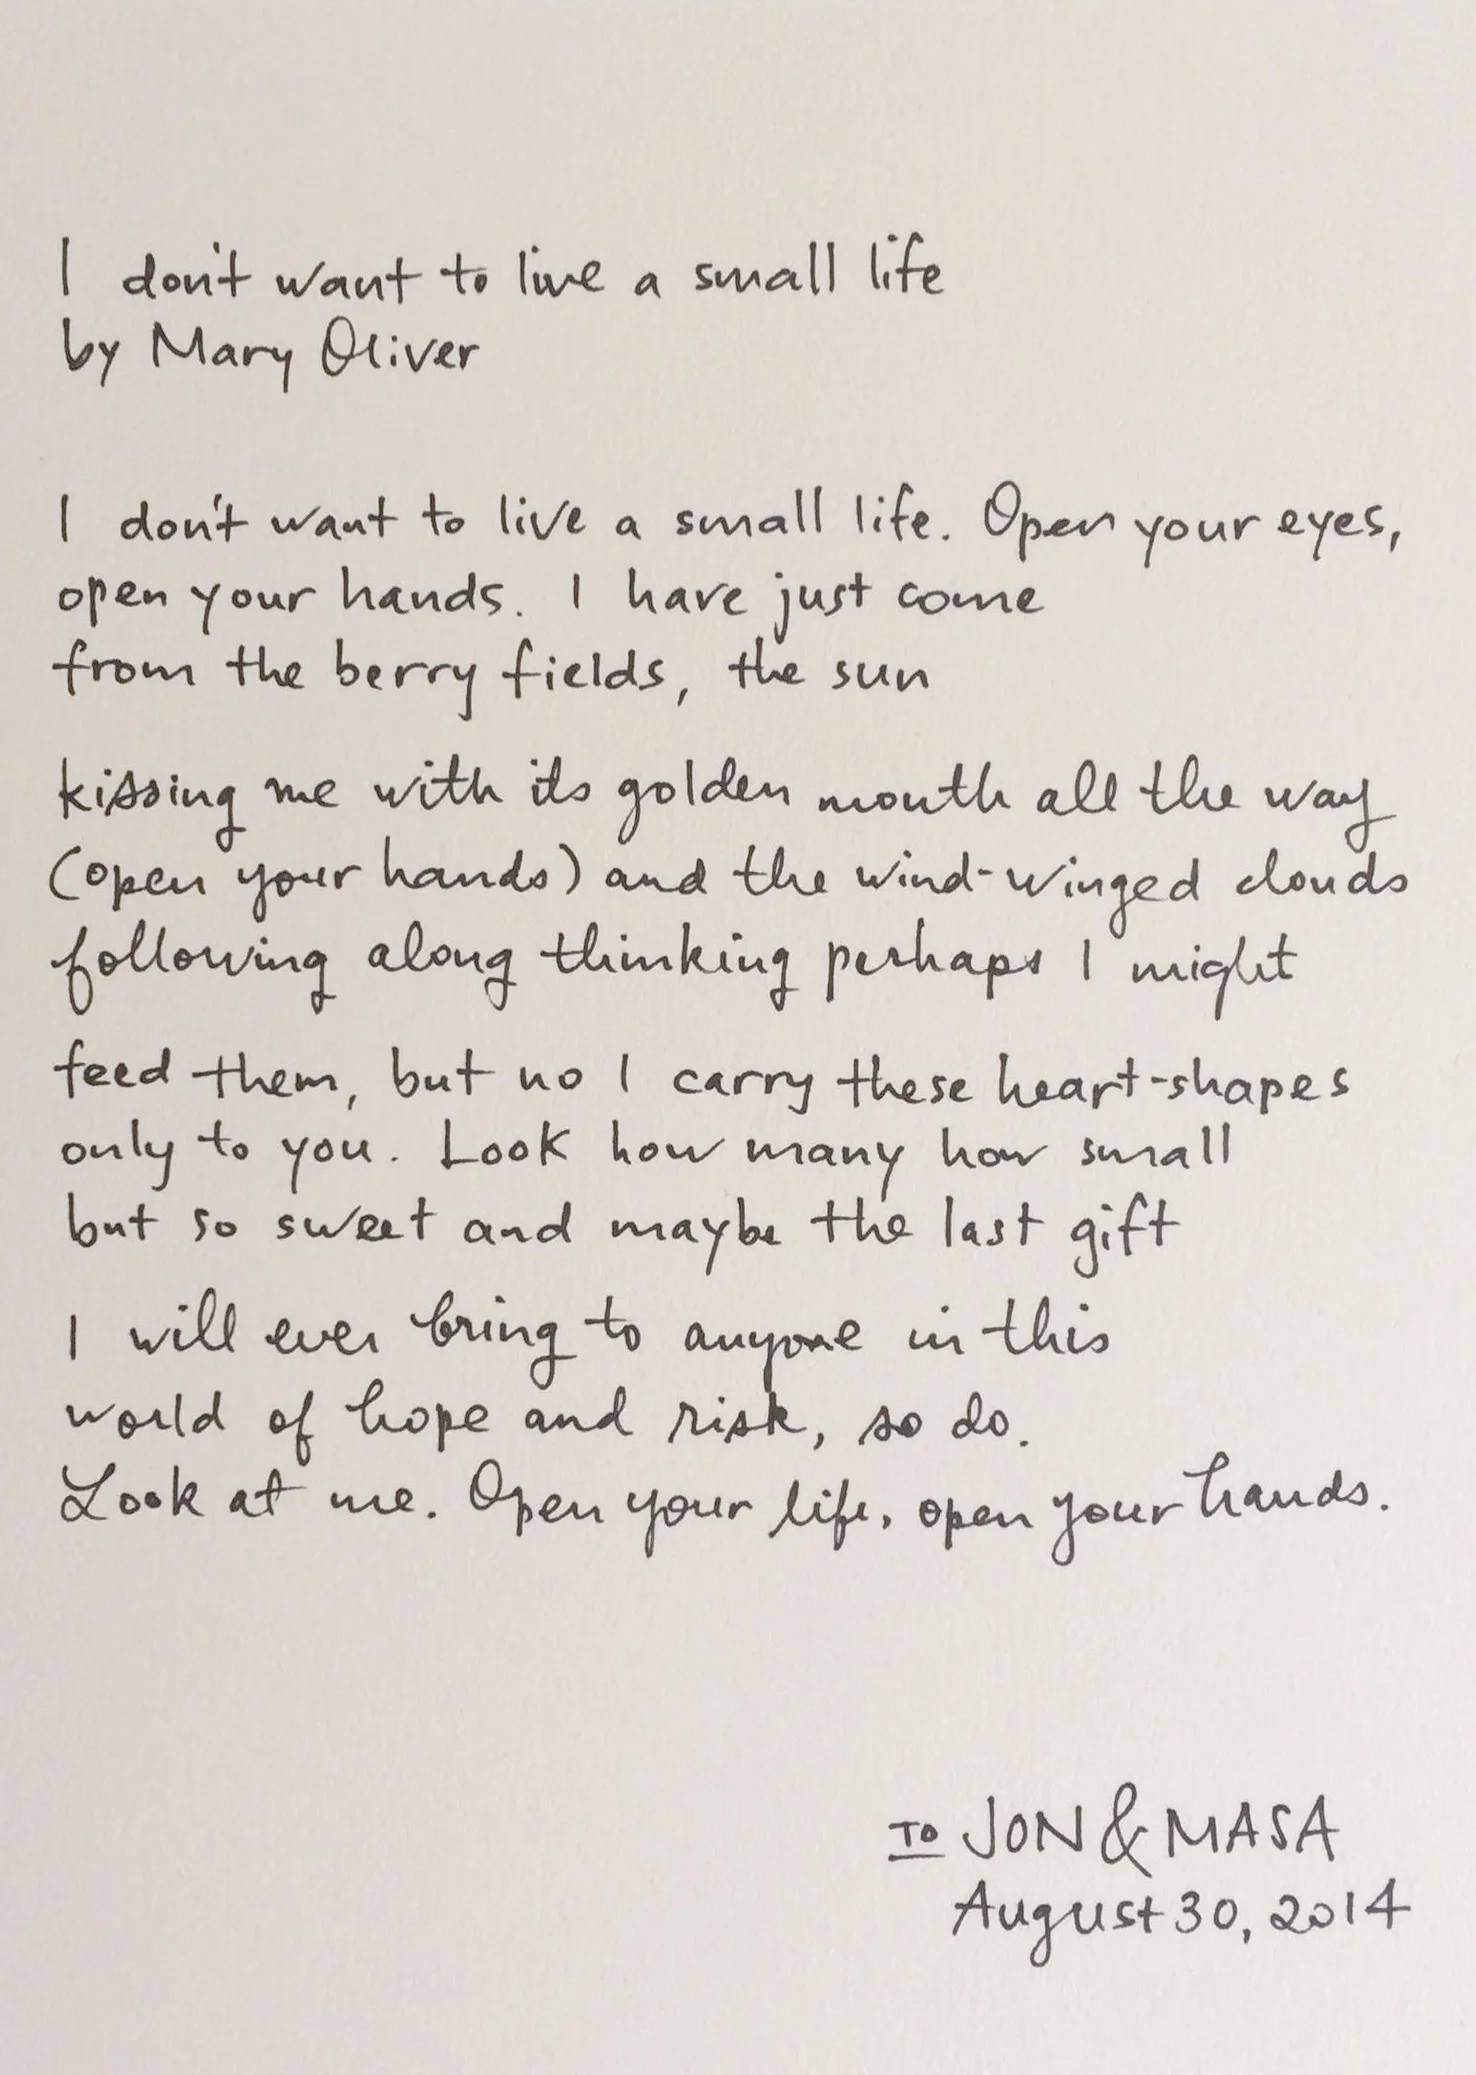 I don't want to live a small life
by Mary Oliver
I don't want to live a small life. Open your eyes,
open your hands. I have just come
from the berry fields, the sun
kissing me with its golden mouth all the way
(open your hands) and the wind-winged clouds
following along thinking perhaps I might
feed them, but no I carry these heart-shapes
only to you. Look how many how small
but so sweet and maybe the last gift
I will ever bring to anyone in this
world of hope and risk, so do.
Look at me. Open your life, open your hands.
TO JON & MASA
August 30, 2014